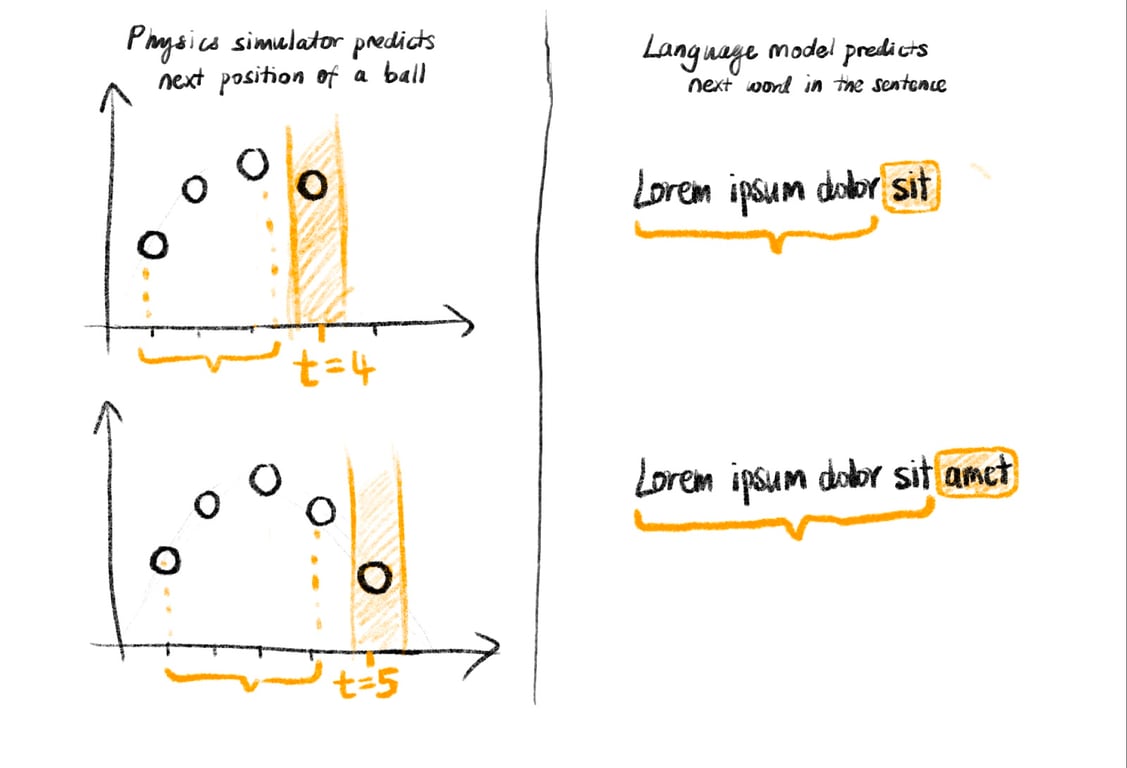 Physics simulator predicts
next position of a ball
t=4
t=5
Language model predicts
next word in the sentence
Lorem ipsum dolor sit
Lorem ipsum dolor sit amet